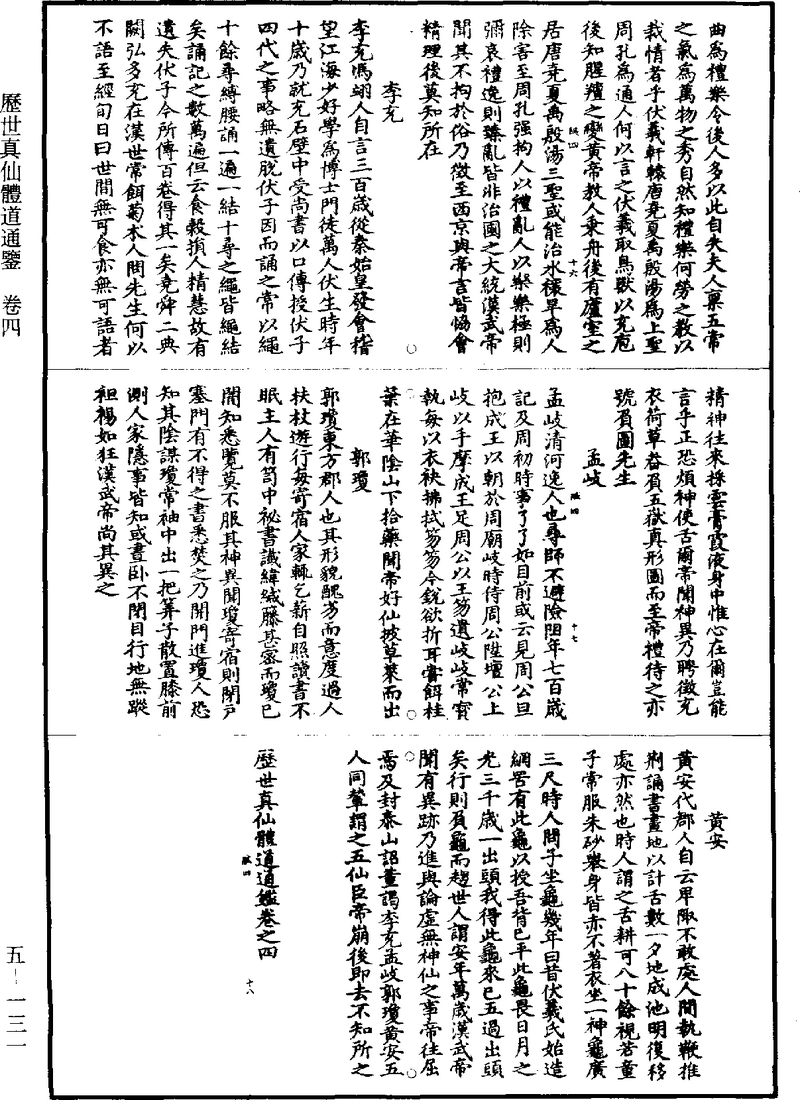 歷世真仙體道通鑒　卷四
五－一三一
曲為禮樂令後人多以此自失夫人稟五常
之氣為萬物之秀自然知禮樂何勞之教以
裁情者乎伏羲軒轅唐堯夏禹殷湯為上聖
周孔為通人何以言之伏羲取鳥獸以充庖
後知腥羶之變黃帝教人乘舟後有廬室之
居唐堯夏禹殷湯三聖或能治水禳旱為人
除害至周孔强拘人以禮亂人以樂樂極則
彌哀禮逸則臻亂皆非治國之大統漢武帝
聞其不拘於俗乃徵至西京與帝言皆恊會
精理後莫知所在
李充
李充馮翊人自言三百歲從秦始皇發會稽
望江海少好學為博士門徒萬人伏生時年
十歲乃就充石壁中受尚書以口傳授伏子
四代之事略無遺脫伏子因而誦之常以繩
十餘尋縛腰誦一遍一結十尋之繩皆繩結
矣誦記之數萬遍但云食穀損人精慧故有
遺失伏子今所傳百卷得其一矣堯舜二典
闕弘多充在漢世常餌菊朮人問先生何以
不語至經旬日曰世間無可食亦無可語者
精神往來採雲膏霞液身中惟心在爾豈能
言乎正恐煩神使舌爾帝聞神異乃聘徵充
衣荷草畚負五嶽真形圖而至帝禮待之亦
號負圖先生
孟岐
孟岐清河逸人也尋師不避險阻年七百歲
記及周初時事了了如目前或云見周公旦
抱成王以朝於周廟岐時侍周公陞壇公上
岐以手摩成王足周公以王笏遺岐岐常寶
執每以衣袂拂拭笏笏今銳欲折耳嘗餌桂
葉在華陰山下拾藥聞帝好仙披草萊而出
郭瓊
郭瓊東方郡人也其形貌醜劣而意度過人
扶杖遊行每寄宿人家輒乞薪自照讀書不
眠主人有笥中祕書讖緯緘縢甚密而瓊已
闇知悉覽莫不服其神異聞瓊寄宿則閉戶
塞門有不得之書悉焚之乃開門進瓊人恐
知其陰謀瓊常袖中出一把筭子散置膝前
測人家隱事皆知或晝卧不閉目行地無蹤
袒裼如狂漢武帝尚其異之
黃安
黃安代郡人自云卑陬不敢處人間執鞭推
荆誦書畫地以計舌數一夕地成池明復移
處亦然也時人謂之舌耕可八十餘視若童
子常服朱砂舉身皆赤不著衣坐一神龜廣
三尺時人問子坐龜幾年曰昔伏羲氏始造
網罟有此龜以授吾背已平此龜畏日月之
光三千歲一出頭我得此龜來已五過出頭
矣行則負龜而趨世人謂安年萬歲漢武帝
聞有異跡乃進與論虛無神仙之事帝往屈
焉及封泰山詔董謁李充孟岐郭瓊黃安五
人同輦謂之五仙臣帝崩後即去不知所之
歷世真仙體道通鑑卷之四